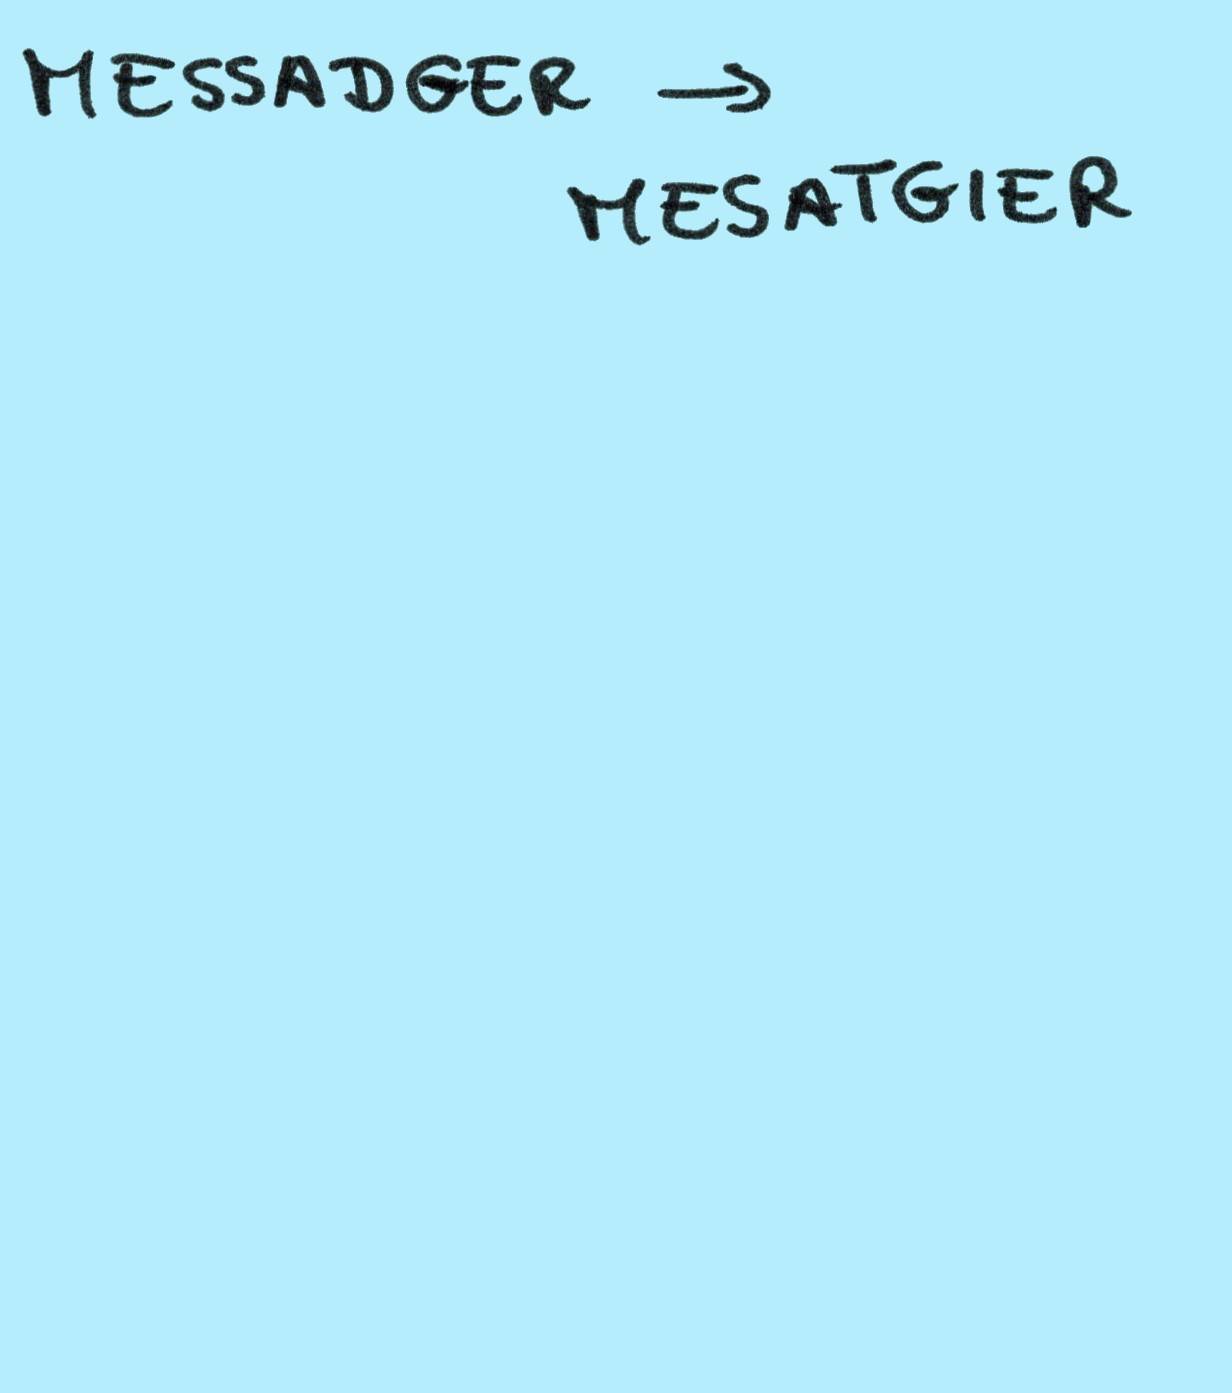 MESSADGER →
MESATGIER